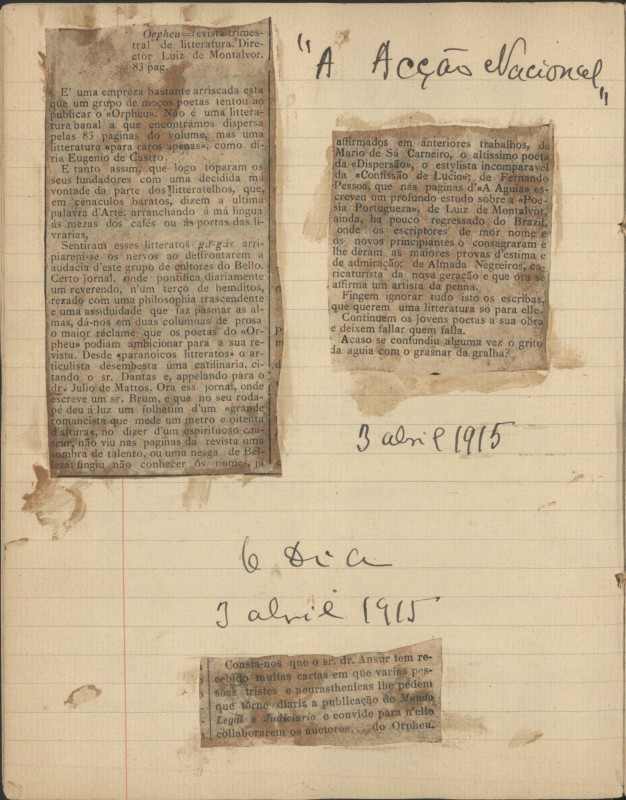 "A Acção Nacional"
Orpheu—revista trimes-
tral de litteratura. Dire-
ctor Luiz de Montalvor.
83 pag.
E' uma empreza bastante arriscada esta
que um grupo de moços poetas tentou ao
publicar o «Orpheu». Não é uma littera-
tura banal a que encontrámos dispersa
pelas 83 paginas do volume, mas uma
litteratura «para raros apenas», como di-
ria Eugenio de Castro.
E tanto assim, que logo toparam os
seus fundadores com uma decidida má
vontade da parte dos litteratelhos, que,
em cenaculos baratos, dizem a ultima
palavra d'Arte, arranchando á má lingua
ás mezas dos cafés ou ás portas das li-
vrarias,
Sentiram esses litteratos gá-gás arri-
piarem-se os nervos ao deffrontarem a
audacia d'este grupo de cultores do Bello.
Certo jornal, onde pontifica diariamente
um reverendo, n'um terço de bemditos,
rezado com uma philosophia trascendente
e uma assiduidade que faz pasmar as al-
mas, dá-nos em duas columnas de prosa
o maior réclame que os poetas do «Or-
pheu» podiam ambicionar para a sua re-
vista. Desde «paranoicos litteratos» o ar-
ticulista desembesta uma catilinaria, ci-
tando o sr. Dantas e, appelando para o
dr. Julio de Mattos. Ora esse jornal, onde
escreve um sr. Brum, e que no seu roda-
pé deu á luz um folhetim d'um «grande
romancista que mede um metro e oitenta
d'altura», no dizer d'um espirituoso cau-
seur, não viu nas paginas da revista uma
sombra de talento, ou uma nesga de Bel-
leza: fingiu não conhecer os nomes, já
affirmados em anteriores trabalhos, de
Mario de Sá Carneiro, o altissimo poeta
da «Dispersão», o estylista incomparavel
da «Confissão de Lucio»; de Fernando
Pessoa, que nas paginas d'«A Aguia» es-
creveu um profundo estudo sobre a «Poe-
sia Portugueza», de Luiz de Montalvor,
ainda, ha pouco regressado do Brazil,
onde os escriptores de mór nome e
os novos principiantes o consagraram e
lhe deram as maiores provas d'estima e
de admiração; de Almada Negreiros, ca-
ricaturista da nova geração e que ora se
affirma um artista da penna.
Fingem ignorar tudo isto os escribas,
que querem uma litteratura só para elle.
Continuem os jovens poetas a sua obra
e deixem fallar quem falla.
Acaso se confundiu alguma vez o grito
da aguia com o grasnar da gralha?
3 abril 1915
O Dia
3 abril 1915
Consta-nos que o sr. dr. Ansur tem re-
cebido muitas cartas em que varias pes-
soas tristes e neurasthenicas lhe pedem
que torne diaria a publicação do Mundo
Legal e Judiciario e convide para n'elle
collaborarem os auctores... do Orpheu.